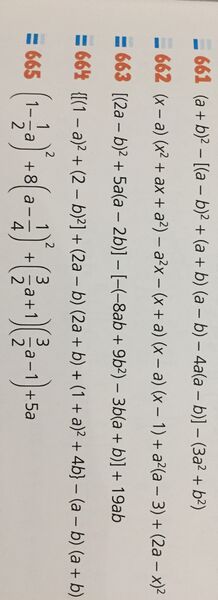 661 (a + b)² − [(a − b)² + (a + b) (a − b) − 4a(a − b)] − (3a² + b²)
662 (x − a) (x² + ax + a²) − a²x − (x + a) (x − a) (x − 1) + a²(a − 3) + (2a − x)²
663 [(2a − b)² + 5a(a − 2b)] − [−(−8ab + 9b²) − 3b(a + b)] + 19ab
664 {[(1 − a)² + (2 − b)²] + (2a − b) (2a + b) + (1 + a)² + 4b} − (a − b) (a + b)
665 (1 − 1/2 a)² + 8(a − 1/4)² + (3/2 a + 1)(3/2 a − 1) + 5a